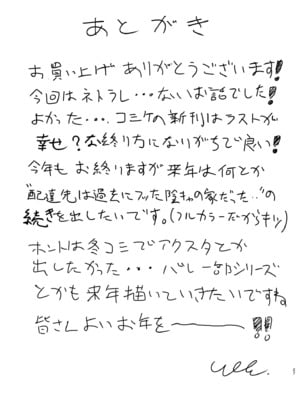 あとがき
お買い上げ ありがとうございます!
今回はネトラレ・・・ないお話でした!
よかった・・・。コミケの新刊はラストが
幸せ?な終り方になりがちで良い!
今年も お終りますが来年は何とか
"配達先は過去にフッた陰キャの家だった…"の
続きを出したいです。(フルカラーだからキツい)
ホントは冬コミでアクスタとか
出したかった・・・バレー部シリーズ
とかも来年描いていきたいですね
皆さんよいお年を――!!